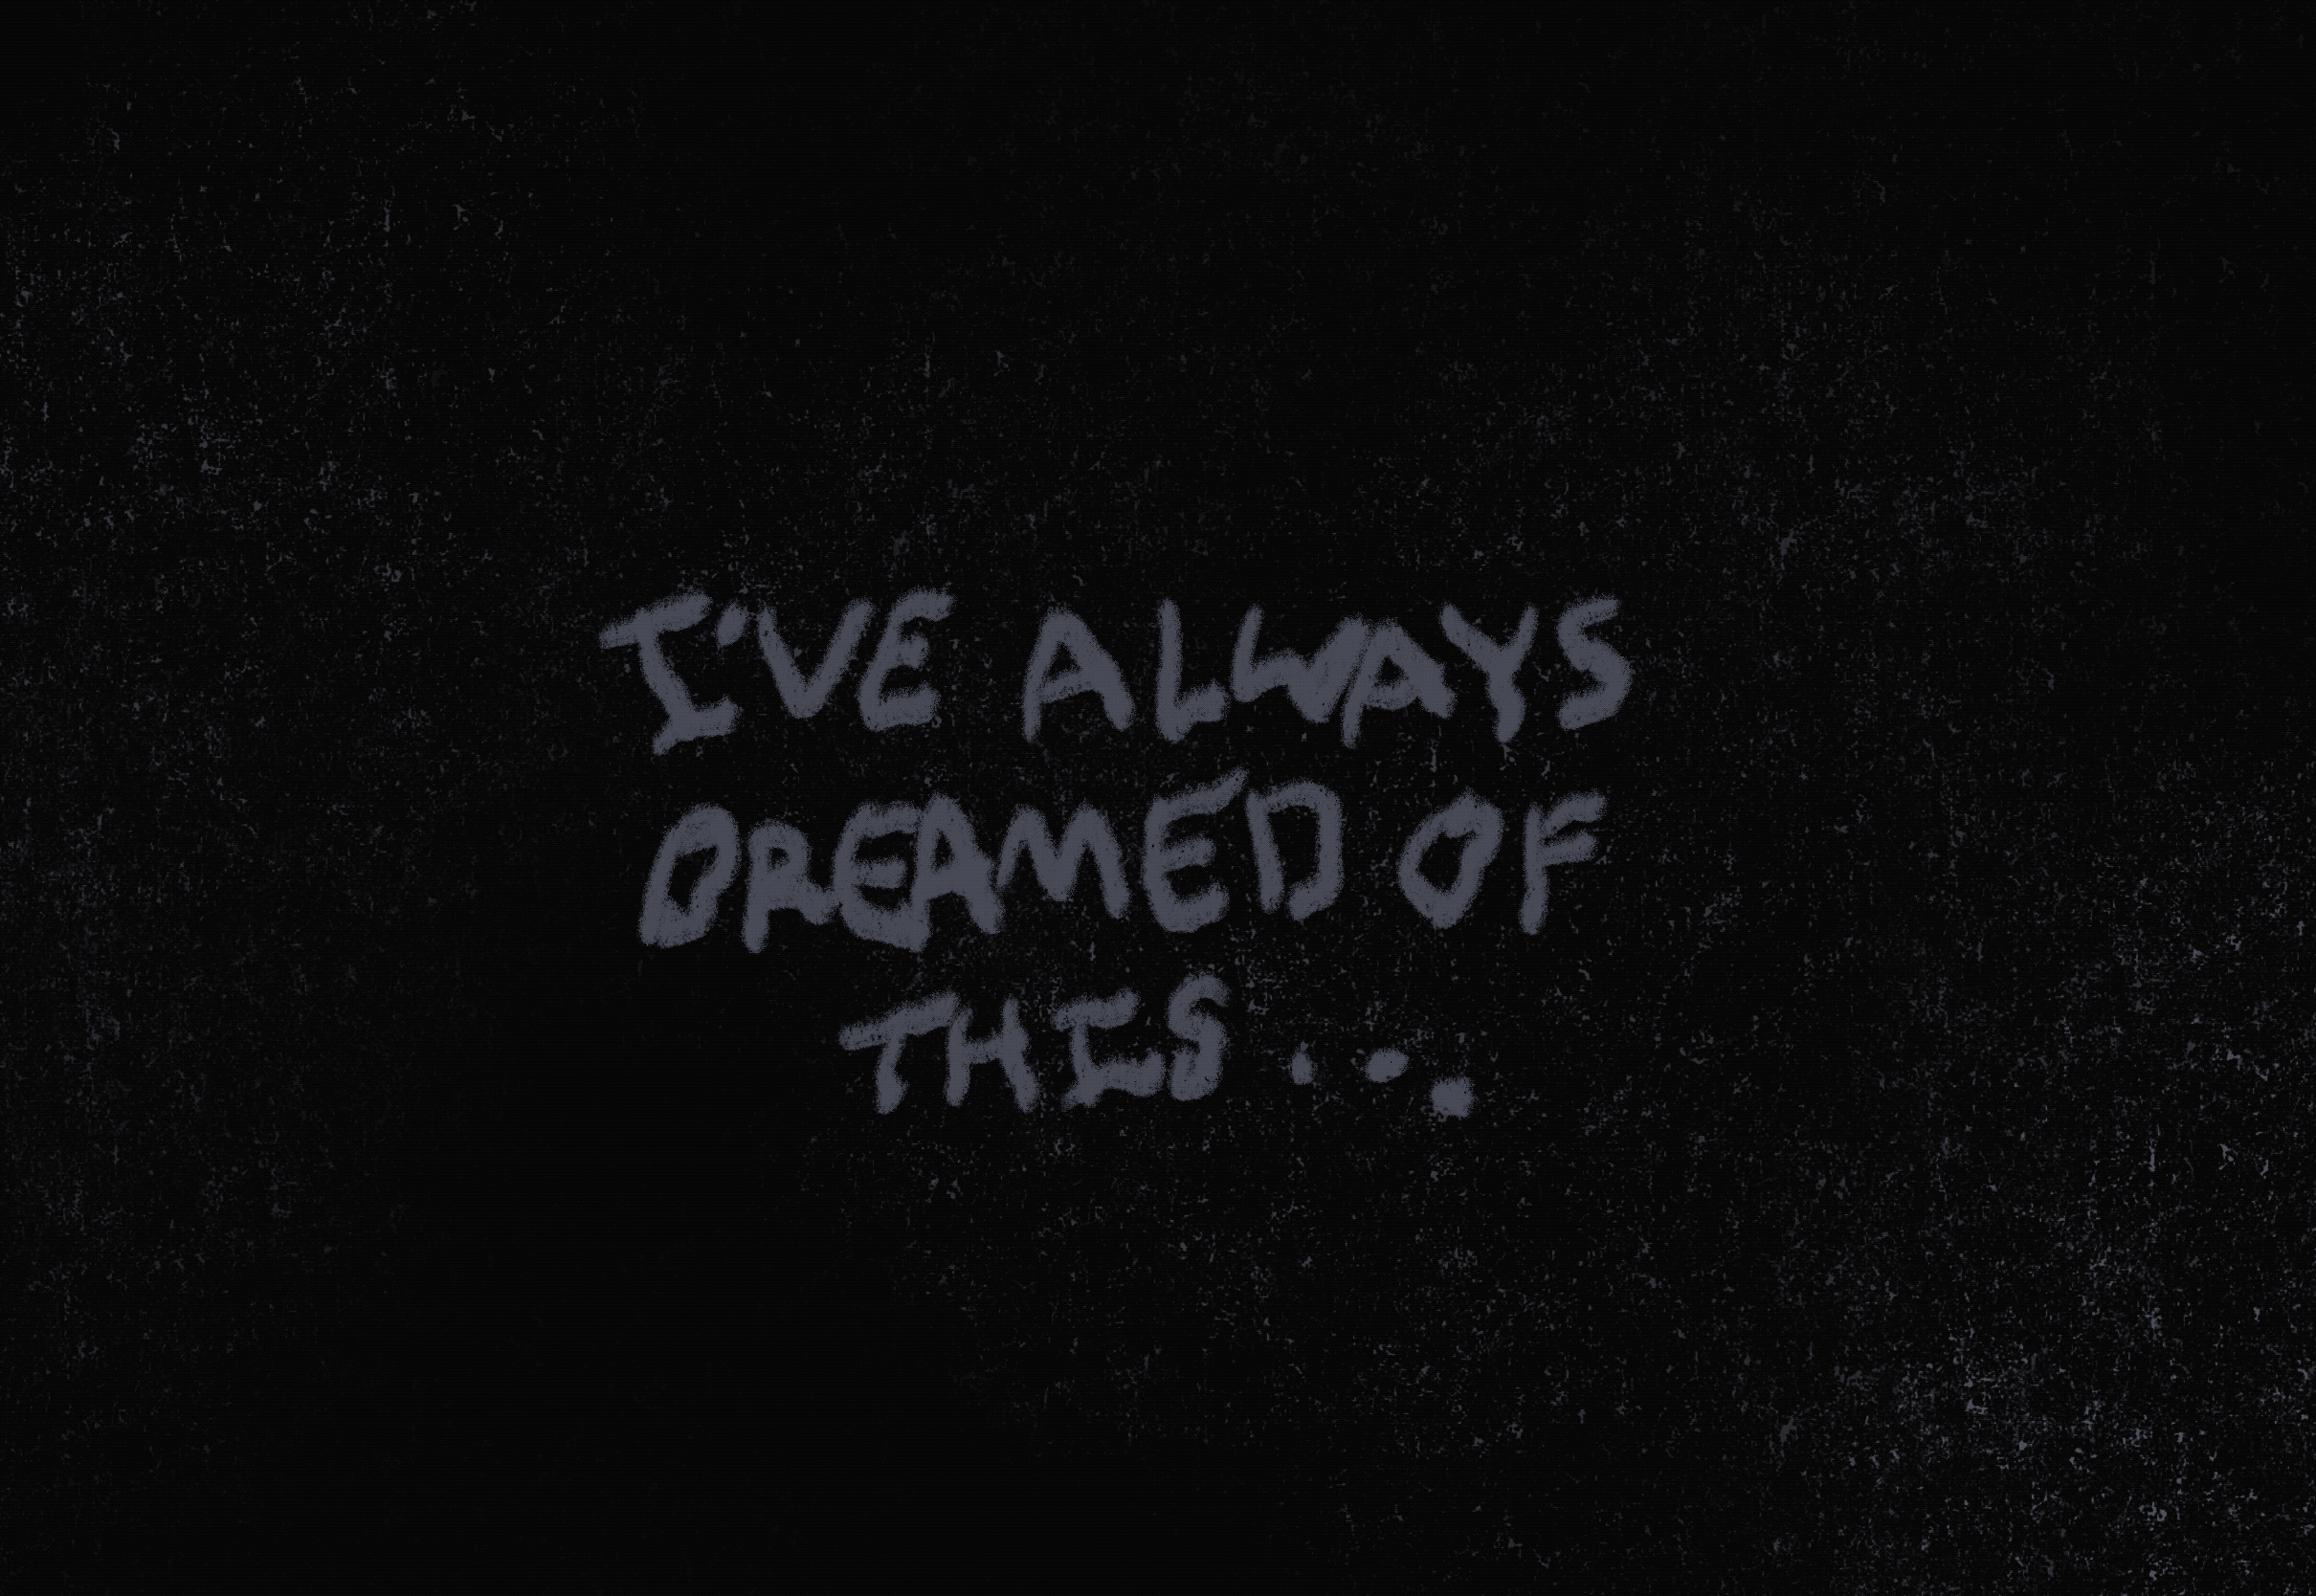 I'VE ALWAYS
DREAMED OF
THIS...